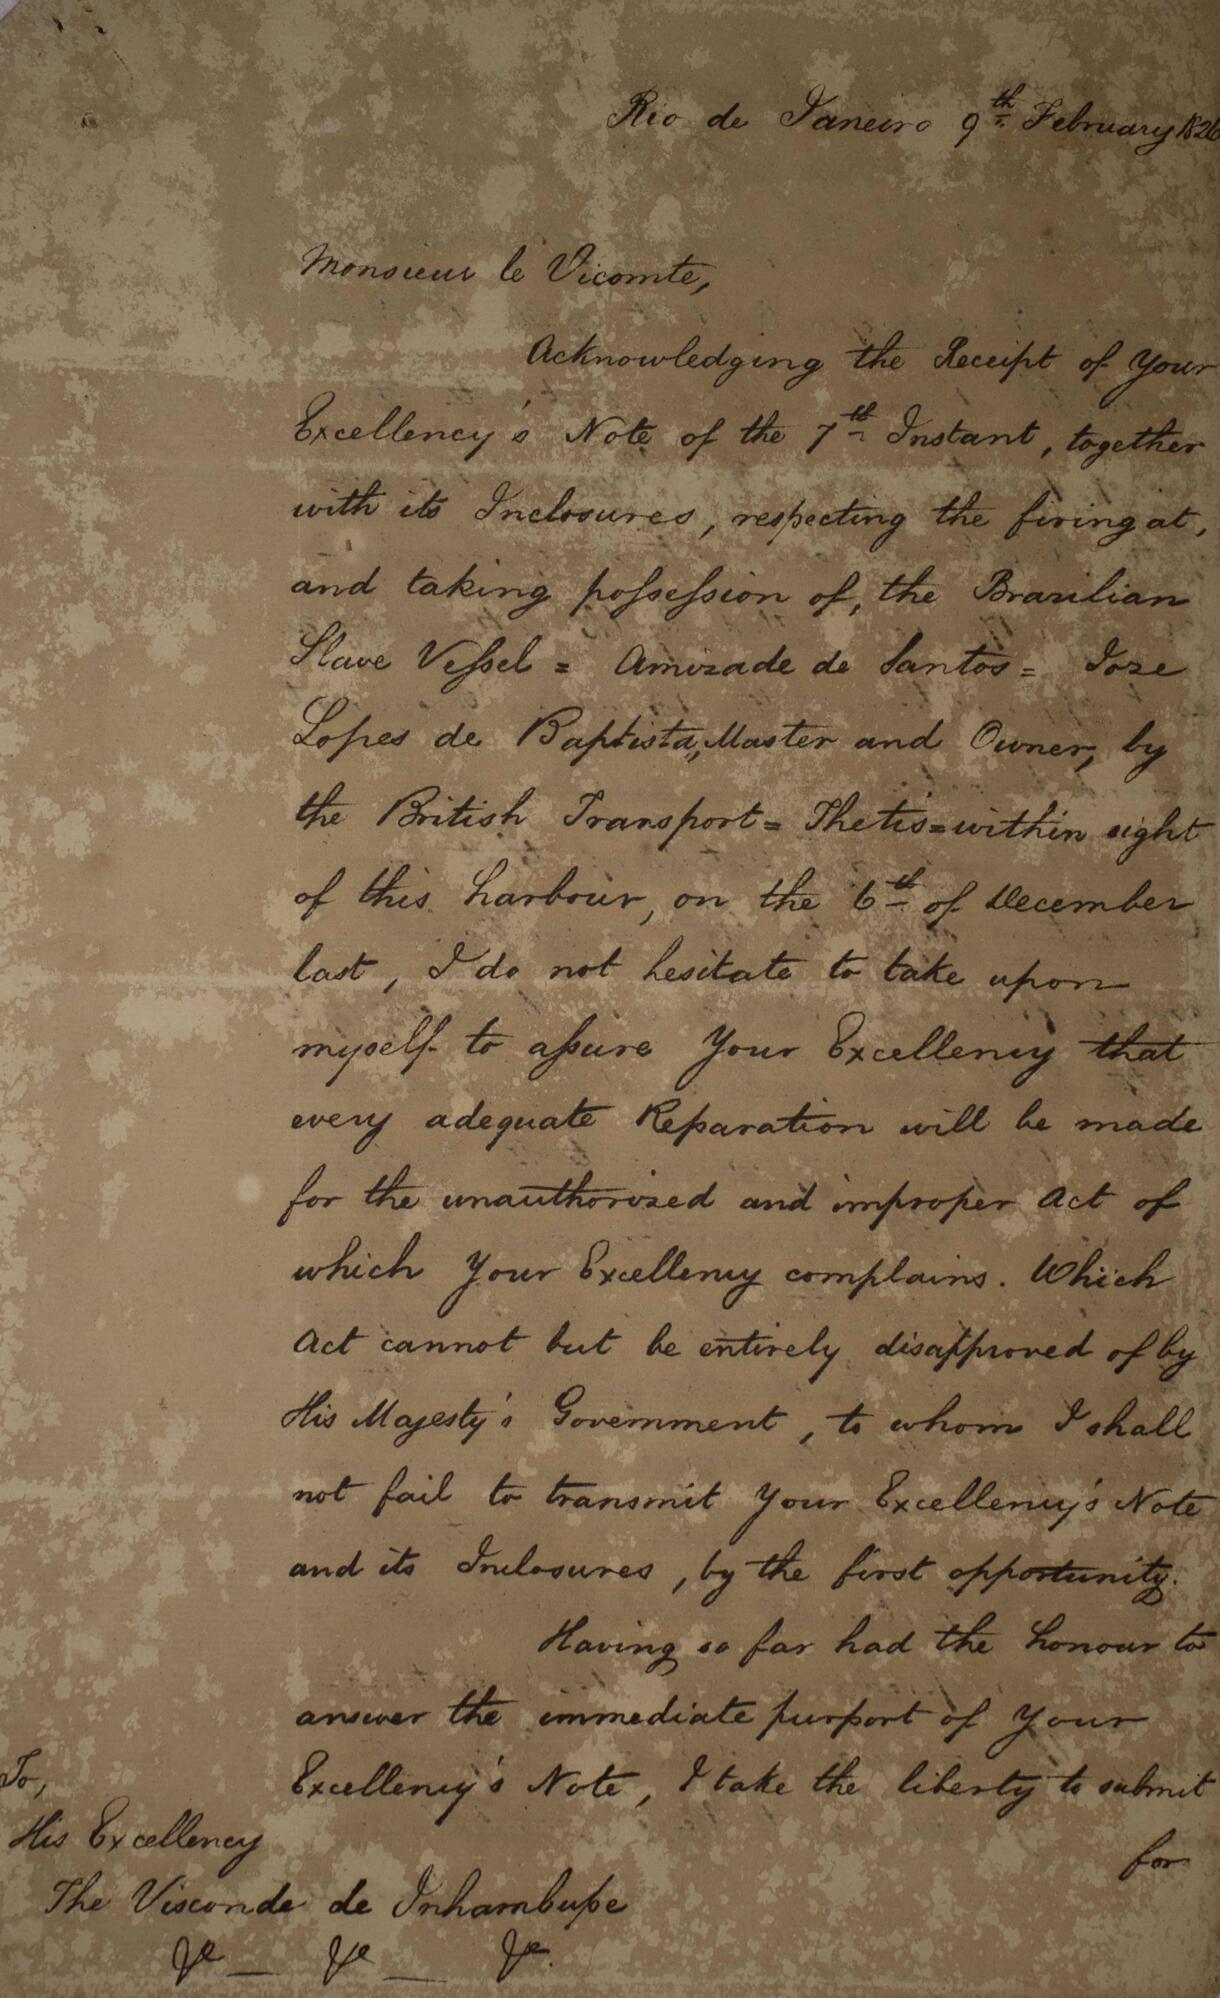 Rio de Janeiro 9th February 1826
Monsieur le Vicomte,
Acknowledging the Receipt of Your
Excellency's Note of the 7th Instant, together
with its Inclosures, respecting the firing at,
and taking possession of, the Brazilian
Slave Vessel = Amizade de Santos = Joze
Lopes de Baptista, Master and Owner, by
the British Transport = Thetis = within sight
of this harbour, on the 6th of December
last, I do not hesitate to take upon
myself to assure Your Excellency that
every adequate Reparation will be made
for the unauthorized and improper Act of
which Your Excellency complains. Which
Act cannot but be entirely disapproved of by
His Majesty's Government, to whom I shall
not fail to transmit Your Excellency's Note
and its Inclosures, by the first opportunity.
Having so far had the honour to
answer the immediate purport of Your
Excellency's Note, I take the liberty to submit
for
To,
His Excellency
The Visconde de Inhambupe
&c _ &c _ &c.